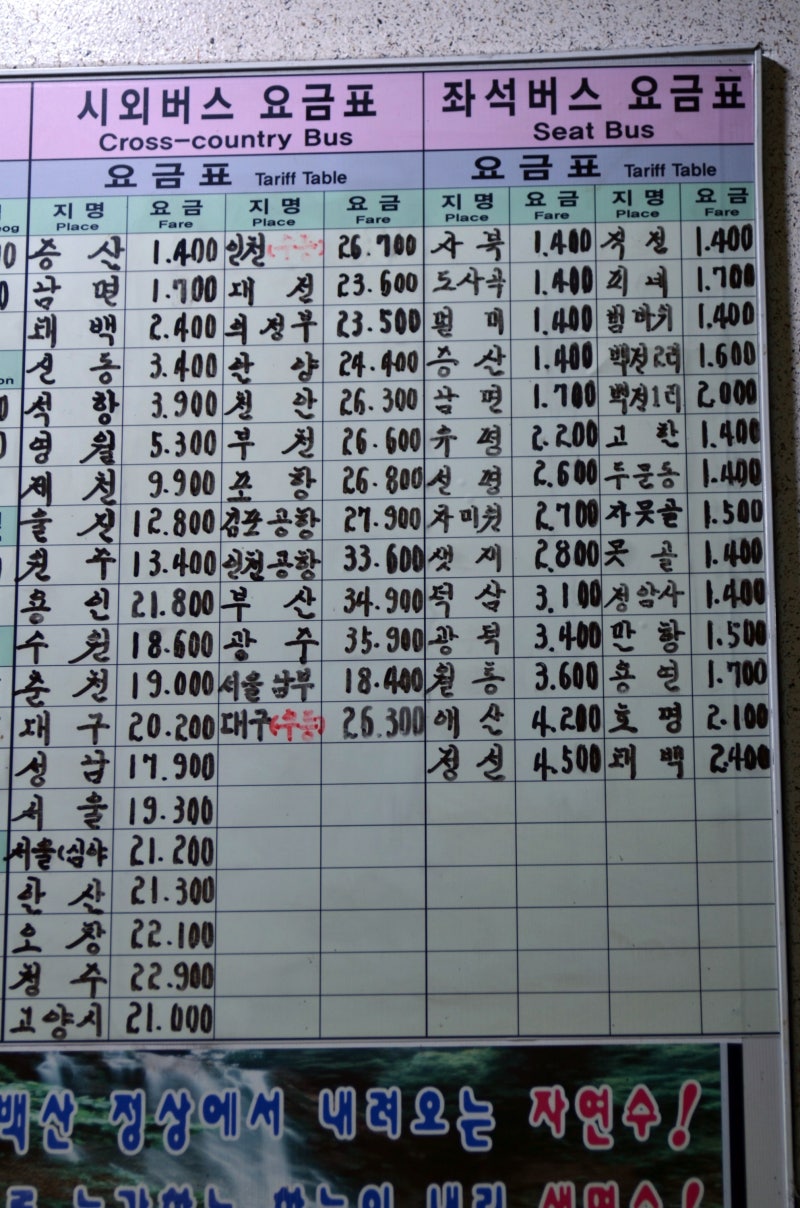 시외버스 요금표 좌석버스 요금표
Cross-country Bus Seat Bus
요금표 Tariff Table 요금표 Tariff Table
지명 요금 지명 요금 지명 요금 지명 요금
eog Place Fare Place Fare Place Fare Place Fare
증산 1.400 인천(우등) 26.700 사북 1.400 직전 1.400
남면 1.700 대전 23.600 도사곡 1.400 1.700
태백 2.400 의정부 23.500 1.400 범바위 1.400
신동 3.400 안양 24.400 증산 1.400 백전2리 1.600
석항 3.900 천안 26.300 남면 1.700 백전1리 2.000
영월 5.300 부천 26.600 유평 2.200 고한 1.400
제천 9.900 포항 26.800 선평 2.600 두문동 1.400
울진 12.800 김포공항 27.900 자미원 2.700 자뭇골 1.500
원주 13.400 인천공항 33.600 샛재 2.800 못골 1.400
용인 21.800 부산 34.900 덕삼 3.100 정암사 1.400
수원 18.600 광주 35.900 광덕 3.400 만항 1.500
춘천 19.000 서울남부 18.400 월통 3.600 용연 1.700
대구 20.200 대구(우등) 26.300 애산 4.200 호명 2.100
성남 17.900 정선 4.500 태백 2.400
서울 19.300
서울(심야 21.200
안산 21.300
오창 22.100
청주 22.900
고양시 21.000
백산 정상에서 내려오는 자연수!